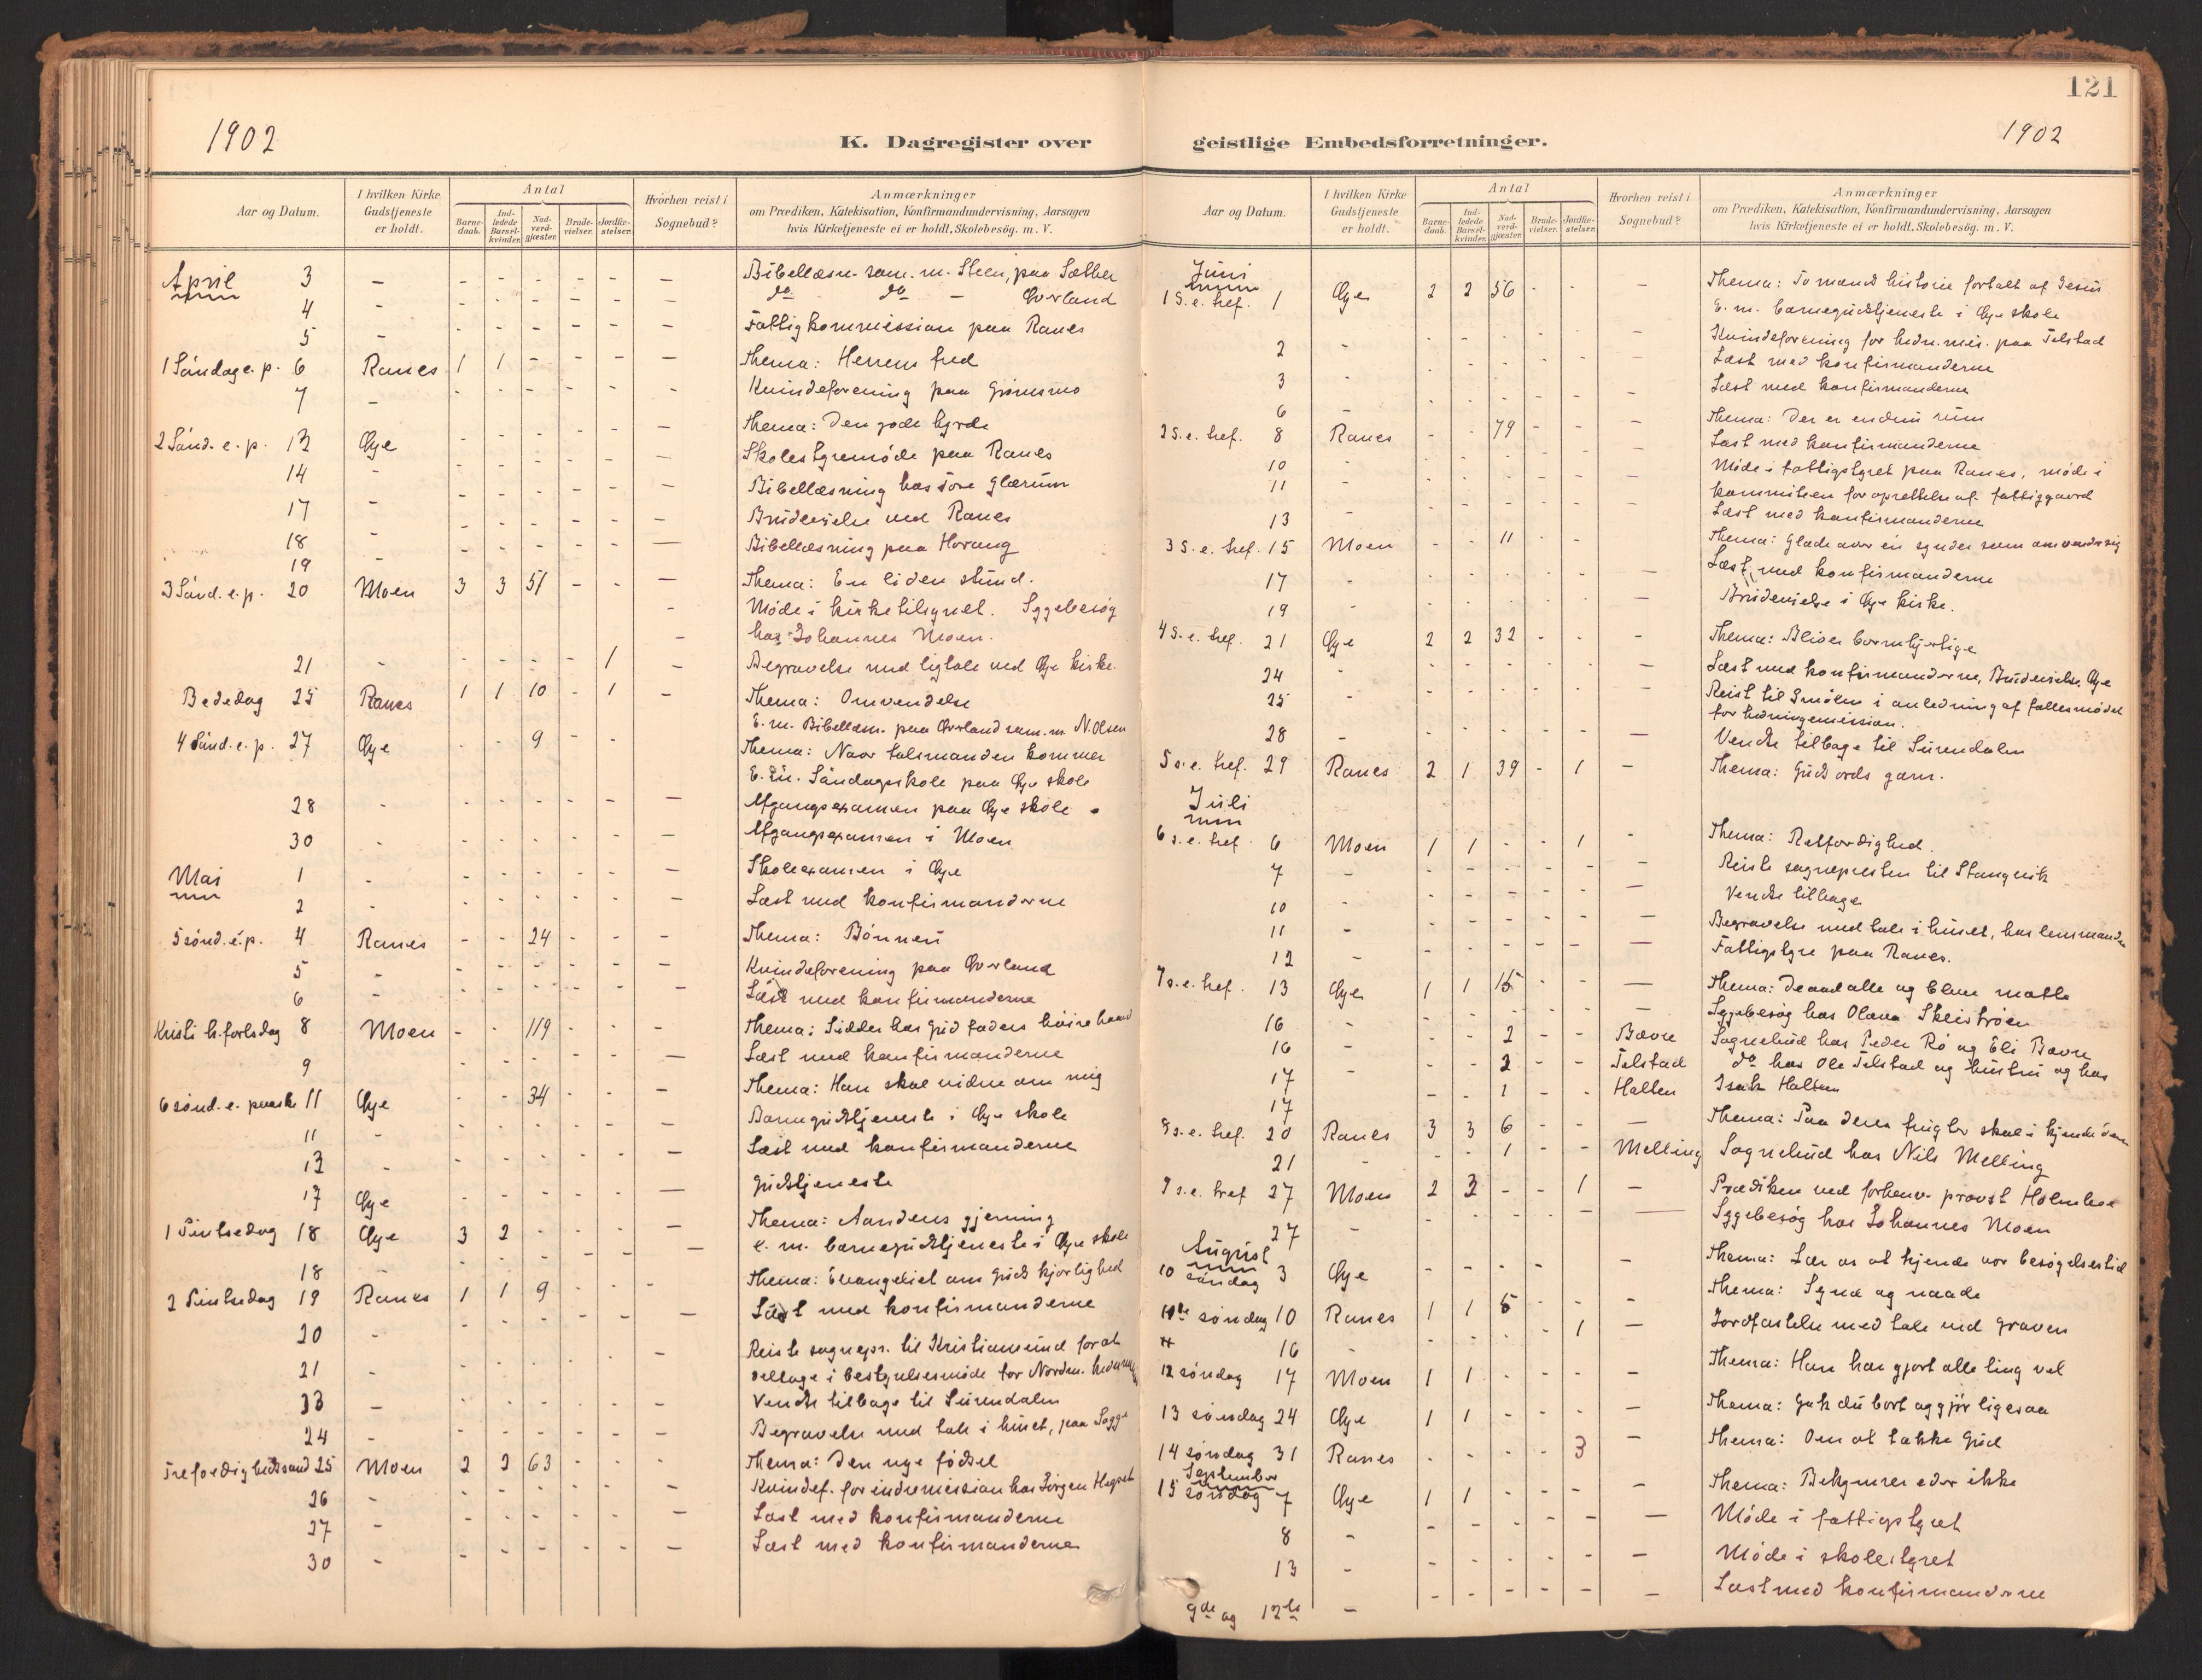 121
1902
K. Dagregister over
geistlige Embedsforretninger.
1902
Aar og Datum.
I hvilken Kirke Gudstjeneste er holdt.
Antal
Barnedaab.
Indledede Barselkvinder.
Nadverdgjæster.
Brudevielser.
Jordfæstelser.
Hvorhen reist i Sognebud?
Anmærkninger
om Prædiken, Katekisation, Konfirmandundervisning, Aarsagen
hvis Kirketjeneste ei er holdt, Skolebesög. m. V.
April 3 - - - - - - - Bibellæsn. sam. m. Steen, paa Sæther
4 - - - - - - do do - Øverland
5 - - - - - - - Fattigkommission paa Ranes
1 Söndag e. p. 6 Ranes 1 1 - - - - Thema: Herrens fred
7 - - - - - - - Kvindeforening paa Grönsmo
2 Sönd. e. p. 13 Øye - - - - - - Thema: Den gode hyrde
14 - - - - - - - Skolestyremöde paa Ranes
17 - - - - - - - Bibellæsning hos Tore Glærum
18 - - - - - - - Brudevielse ved Ranes
19 - - - - - - Bibellæsning paa Horang
3 Sönd. e. p. 20 Moen 3 3 51 - - - Thema: En liden stund.
Möde i kirketilsynet. Sygebesög
hos Johannes Moen.
21 - - - - - 1 - Begravelse med ligtale ved Øye kirke.
Bededag 25 Ranes 1 1 10 - 1 - Thema: Omvendelse
E. m. Bibellæsn. paa Øverland sam. m. N. Olsen
4 Sönd. e. p. 27 Øye - - 9 - - - Thema: Naar talsmanden kommer
E. m. Söndagsskole paa Øye skole
28 - - - - - - - Afgangsexamen paa Øye skole
30 - - - - - - - Afgangsexamen i Moen
Mai 1 - - - - - - - Skoleexamen i Øye
2 - - - - - - - Læst med konfirmanderne
5 sönd. e. p. 4 Ranes - - 24 - - - Thema: Bönnen
5 - - - - - - - Kvindeforening paa Øverland
6 - - - - - - - Læst med konfirmanderne
Kristi h. fartsdag 8 Moen - - 119 - - - Thema: Sidder hos Gud faders höire haand
9 - - - - - - Læst med konfirmanderne
6 sönd. e. paaske 11 Øye - - 34 - - - Thema: Han skal vidne om mig
11 - - - - - - - Barnegudstjeneste i Øye skole
13 - - - - - - - Læst med konfirmanderne
17 Øye - - - - - - Gudstjeneste
1 Pintsedag 18 Øye 3 2 - - - - Thema: Aandens gjerning
18 - - - - - - e. m. barnegudstjeneste i Øye skole
2 Pintsedag 19 Ranes 1 1 9 - - - Thema: Evangeliet om Guds kjærlighed
20 - - - - - - - Læst med konfirmanderne
21 - - - - - - - Reiste sognepr. til Kristiansund for at
deltage i bestyrelsesmöde for Nordm.
23 - - - - - - - Vendte tilbage til Surendalen
24 - - - - - - - Begravelse med tale i huset, paa Sogge
Trefoldighedssönd 25 Moen 2 2 63 - - - Thema: Den nye födsel
26 - - - - - - - Kvindef. for indremission hos Jörgen
27 - - - - - - - Læst med konfirmanderne
30 - - - - - - - Læst med konfirmanderne
Aar og Datum.
I hvilken Kirke Gudstjeneste er holdt.
Antal
Barnedaab.
Indledede Barselkvinder.
Nadverdgjæster.
Brudevielser.
Jordfæstelser.
Hvorhen reist i Sognebud?
Anmærkninger
om Prædiken, Katekisation, Konfirmandundervisning, Aarsagen
hvis Kirketjeneste ei er holdt, Skolebesög. m. V.
Juni
1 s. e. tref. 1 Øye 2 2 56 - - - Thema: To mænds historie fortalt af Jesus
E. m. barnegudstjeneste i Øye skole
2 - - - - - - - Kvindeforening for hedn. mis. paa Telstad
3 - - - - - - Læst med konfirmanderne
6 - - - - - - - Læst med konfirmanderne
2 s. e. tref. 8 Ranes - - 79 - - - Thema: Der er endnu rum
10 - - - - - - - Læst med konfirmanderne
11 - - - - - - - Möde i fattigstyret paa Ranes, möde i
komiteen for oprettelse af fattiggaard
13 - - - - - - - Læst med konfirmanderne
3 s. e. tref. 15 Moen - - 11 - - Thema: Glæde over en synder som omvender sig
17 - - - - - - - Læst med konfirmanderne
19 - - - - - - - Brudevielse i Øye kirke.
4 s. e. tref. 21 Øye 2 2 32 - - - Thema: Bliver barmhjertige
24 - - - - - - - Læst med konfirmanderne, Brudevielse, Øye
25 - - - - - - - Reist til Smölen i anledning af fællesmödet
for hedningemission.
28 - - - - - - - Vendte tilbage til Surendalen
5 s. e. tref. 29 Ranes 2 1 39 - 1 - Thema: Guds ords garn.
Juli
6 s. e. tref. 6 Moen 1 1 - - 1 - Thema: Retfærdighed.
7 - - - - - - - Reiste sognepresten til Stangvik
10 - - - - - - - Vendte tilbage
11 - - - - - - - Begravelse med tale i huset, hos lensmanden
12 - - - - - - - Fattigstyre paa Ranes.
7 s. e. tref. 13 Øye 1 1 15 - - - Thema: De aad alle og bleve mætte
16 - - - - - - - Sygebesög hos Olava Skeiströen
16 - - - 2 - - Bævre Sognebud hos Peder Rö og Eli Bævre
17 - - 2 - - Telstad do hos Ole Telstad og hustru og hos
17 - - 1 - - Halten Isak Halten
8 s. e. tref. 20 Ranes 3 3 6 - - - Thema: Paa deres frugter skal i kjende dem
21 - - - 1 - - Melling Sognebud hos Nils Melling
9 s. e. tref 27 Moen 2 2 - - 1 - Prædiken ved forhenv. provst Holmboe
27 - - - - - - Sygebesög hos Johannes Moen
August
10 söndag 3 Øye - - - - - Thema: Lær os at kjende vor besögelsestid
11te söndag 10 Ranes 1 1 5 - - - Thema: Synd og naade
16 - - - - - 1 - Jordfæstelse med tale ved graven
12 söndag 17 Moen 1 1 - - - - Thema: Han har gjort alle ting vel
13 söndag 24 Øye 1 1 - - - - Thema: Gak du bort og gjör ligesaa
14 söndag 31 Ranes - - - - 3 - Thema: Om at takke Gud
September
15 söndag 7 Øye 1 1 - - - - Thema: Bekymrer eder ikke
8 - - - - - - - Möde i fattigstyret
13 - - - - - - - Möde i skolestyret
9de og 12te - - - - - - - Læst med konfirmanderne